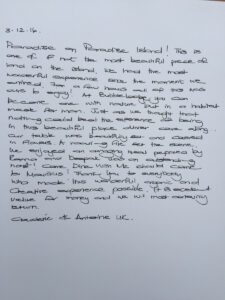 3.12.16.
Paradise on Paradise Island! This is
one of if not the most beautiful piece of
land on the island. We had the most
wonderful experience since the moment we
arrived. For a few hours all of this was
ours to enjoy! At Bubble lodge you can
become one with nature but in a habitat
made for man. Just as we thought that
nothing could beat the experience of being
in this beautiful place dinner came along.
Our table was beautifully set and covered
in flowers. A nourishing for the scene.
We enjoyed an amazing meal prepared by
and Deepak was an outstanding
host! Come Dine With Me should come
to Mauritius! Thank you to everybody
who made this wonderful magic and
creative experience possible. It is excellent
value for money and we will most certainly
return.
& Antoine UK.